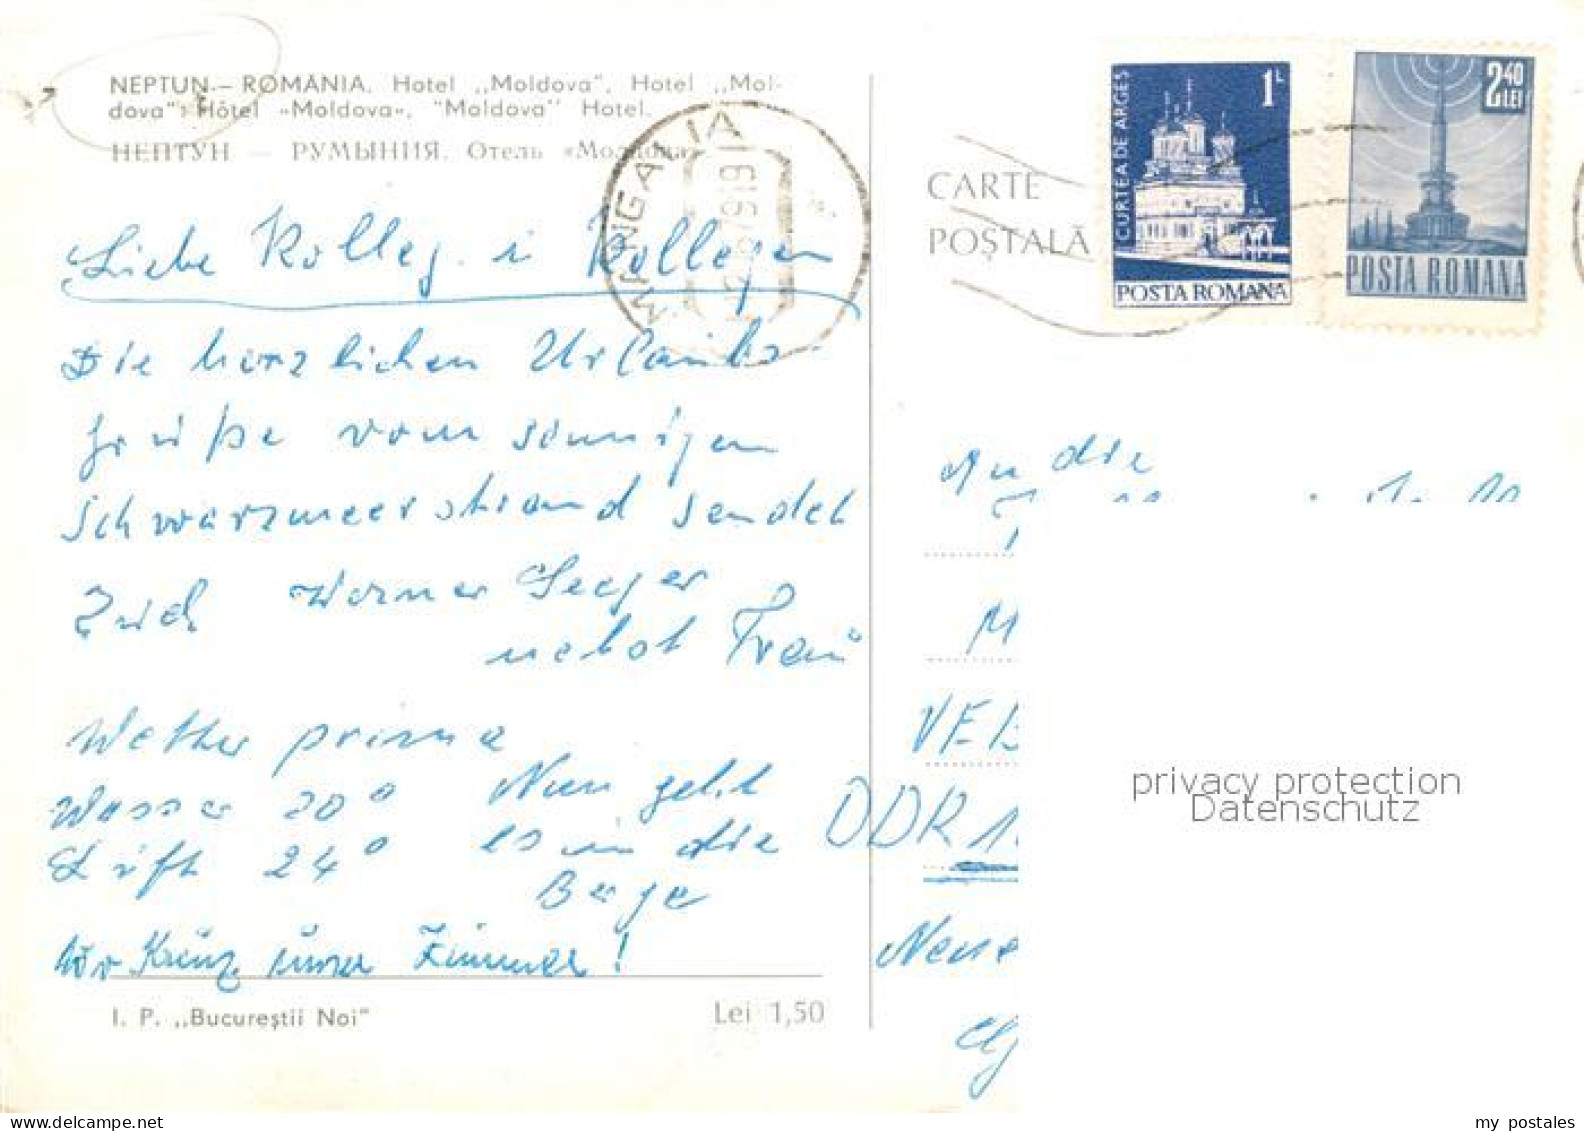 NEPTUN — ROMÂNIA. Hotel „Moldova”, Hotel „Mol-
dova”; Hôtel «Moldova», "Moldova" Hotel.
НЕПТУН — РУМЫНИЯ. Отель «Молдова»
MANGALIA
CARTE
POȘTALĂ
CURTEA DE ARGEȘ
1L
POSTA ROMANA
2,40
LEI
POSTA ROMANA
Liebe Kolleg. i Kollegen
Die herzlichen Urlaubs
grüße vom sonnigen
Schwarzmeerstrand sendet
Euch Werner Seeger
nebst Frau
Wetter prima
Wasser 20°
Luft 24°
Nun geht
es in die
Berge
Kreuz unser Zimmer!
An die
M
VEB
DDR 1
Neue
I. P. „Bucureștii Noi”
Lei 1,50
privacy protection
Datenschutz
www.delcampe.net
my postales